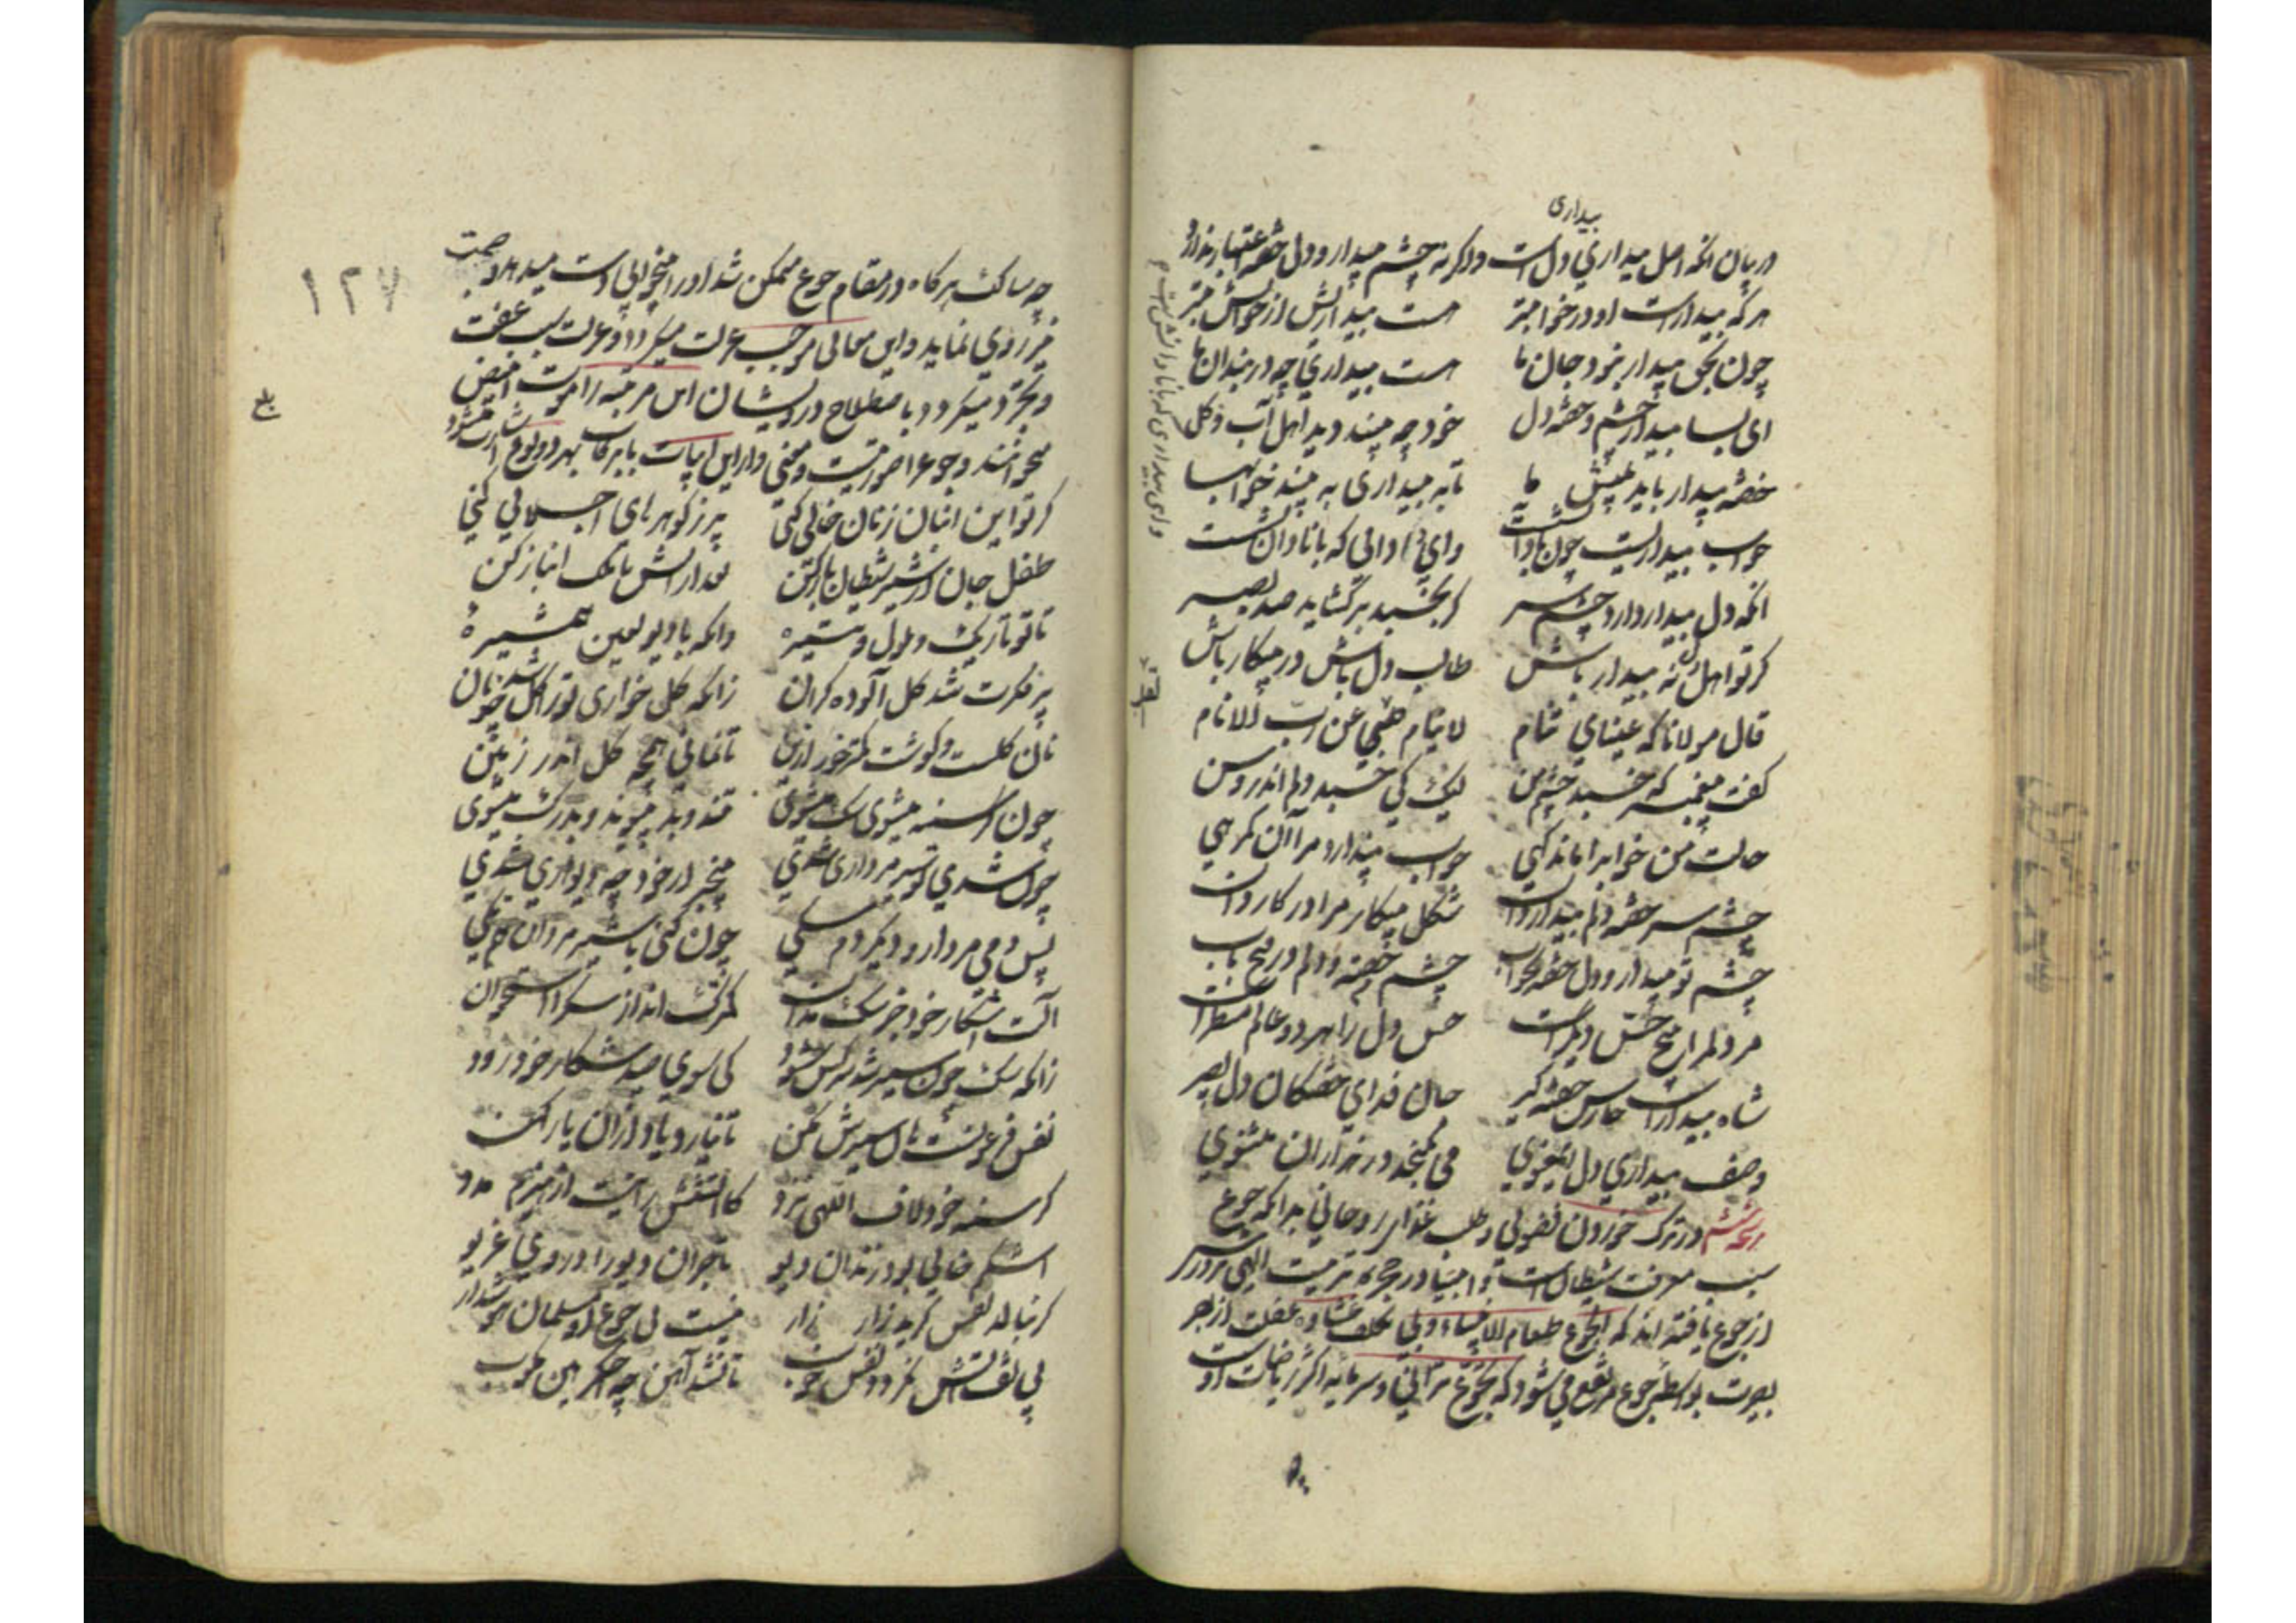 بیداری
در بیان آنکه اصل بیداری دل است و اگر نه چشم بیدار و دل خفته اعتبار ندارد
هر که بیدار است او در خواب تر هست بیداریش از خوابش بتر
چون بحق بیدار نبود جان ما هست بیداری چو دربندان ما
ای بسا بیدار چشم و خفته دل خود چه بیند دید اهل آب و گل
خفته بیدار باید پیش ما تا به بیداری به بیند خوابها
خواب بیداریست چون با دانش است وای بیداری که با نادان نشست
آنکه دل بیدار دارد چشم سر گر بخسبد بر گشاید صد بصر
گر تو اهل دل نه بیدار باش طالب دل باش و در پیکار باش
قال مولانا که عینای تنام لا ینام قلبی عن رب الانام
گفت پیغمبر که خسبد چشم من لیک کی خسبد دلم اندر وسن
حالت من خواب را ماند گهی خواب پندارد مر آن را گمرهی
چشم سر خفته دلم بیدار دان شکل بیکار مرا در کار دان
چشم تو بیدار و دل خفته بخواب چشم خفته دلم در فتح باب
مر دلم را پنج حس دیگر است حس دل را هر دو عالم منظر است
شاه بیدار است حارس خفته گیر جان فدای خفتگان دل بصیر
وصف بیداری دل ای معنوی می نگنجد در هزاران مثنوی
در ترک خوردن فضولی و طلب غذای روحانی بدانکه جوع
سبب معرفت شیطان است و انبیا در حجره تربیت الهی پرورش
از جوع یافته اند که الجوع طعام الانبیاء و بی تکلف غشاوه غفلت از بصر
بصیرت بواسطه جوع مرتفع می شود که تجوع ترانی و سرمایه اکثر ریاضات اوست
وای بیداری که با نادان نشست
۱۲۷
چه سالک هرگاه در مقام جوع متمکن شد او را بیخوابی دست میدهد و صمت
نیز روی نماید و این معانی موجب عزلت میگردد و عزلت سبب عفت
و تجرد میگردد با صطلاح درویشان این مرتبه را موت ابیض
میخوانند و جوع را صورتیست و معنی و از این ابیات بابرکات بهر دو نوع اشارت میشود
گر تو این انبان ز نان خالی کنی پر ز گوهرهای اجلالی کنی
طفل جان از شیر شیطان باز کن بعد از آنش با ملک انباز کن
تا تو تاریک و ملول و تیره دانکه با دیو لعین همشیره
پر فکرت شد گل آلوده گران زانکه گل خواری ترا گل شد چو نان
نان گلست و گوشت کمتر خور ازین تا نمانی همچو گل اندر زمین
چون گرسنه میشوی سگ میشوی تند و بد پیوند و بدرگ میشوی
چون شدی تو سیر مرداری شدی بیخبر از خود چو دیواری شدی
پس دمی مردار و دیگر دم سگی چون کنی با شیر مردان هم تکی
آلت اشکار خود جز سگ مدان کمترک انداز سگ را استخوان
زانکه سگ چون سیر شد سرکش شود کی سوی صید شکار خود رود
نفس فرعونیست هان سیرش مکن تا نیارد یاد از آن یار کهن
گر سنه خود لاف اللهی نزد کاتشش را نیست از هیزم مدد
اشکم خالی بود زندان دیو تا چو آن دیو را در روی غریو
گر بنالد نفس گرید زار زار نیست بی جوع او مسلمان هوشدار
بی تف آتش نگردد نفس خوب تا نشد آهن چو اخگر هین مکوب